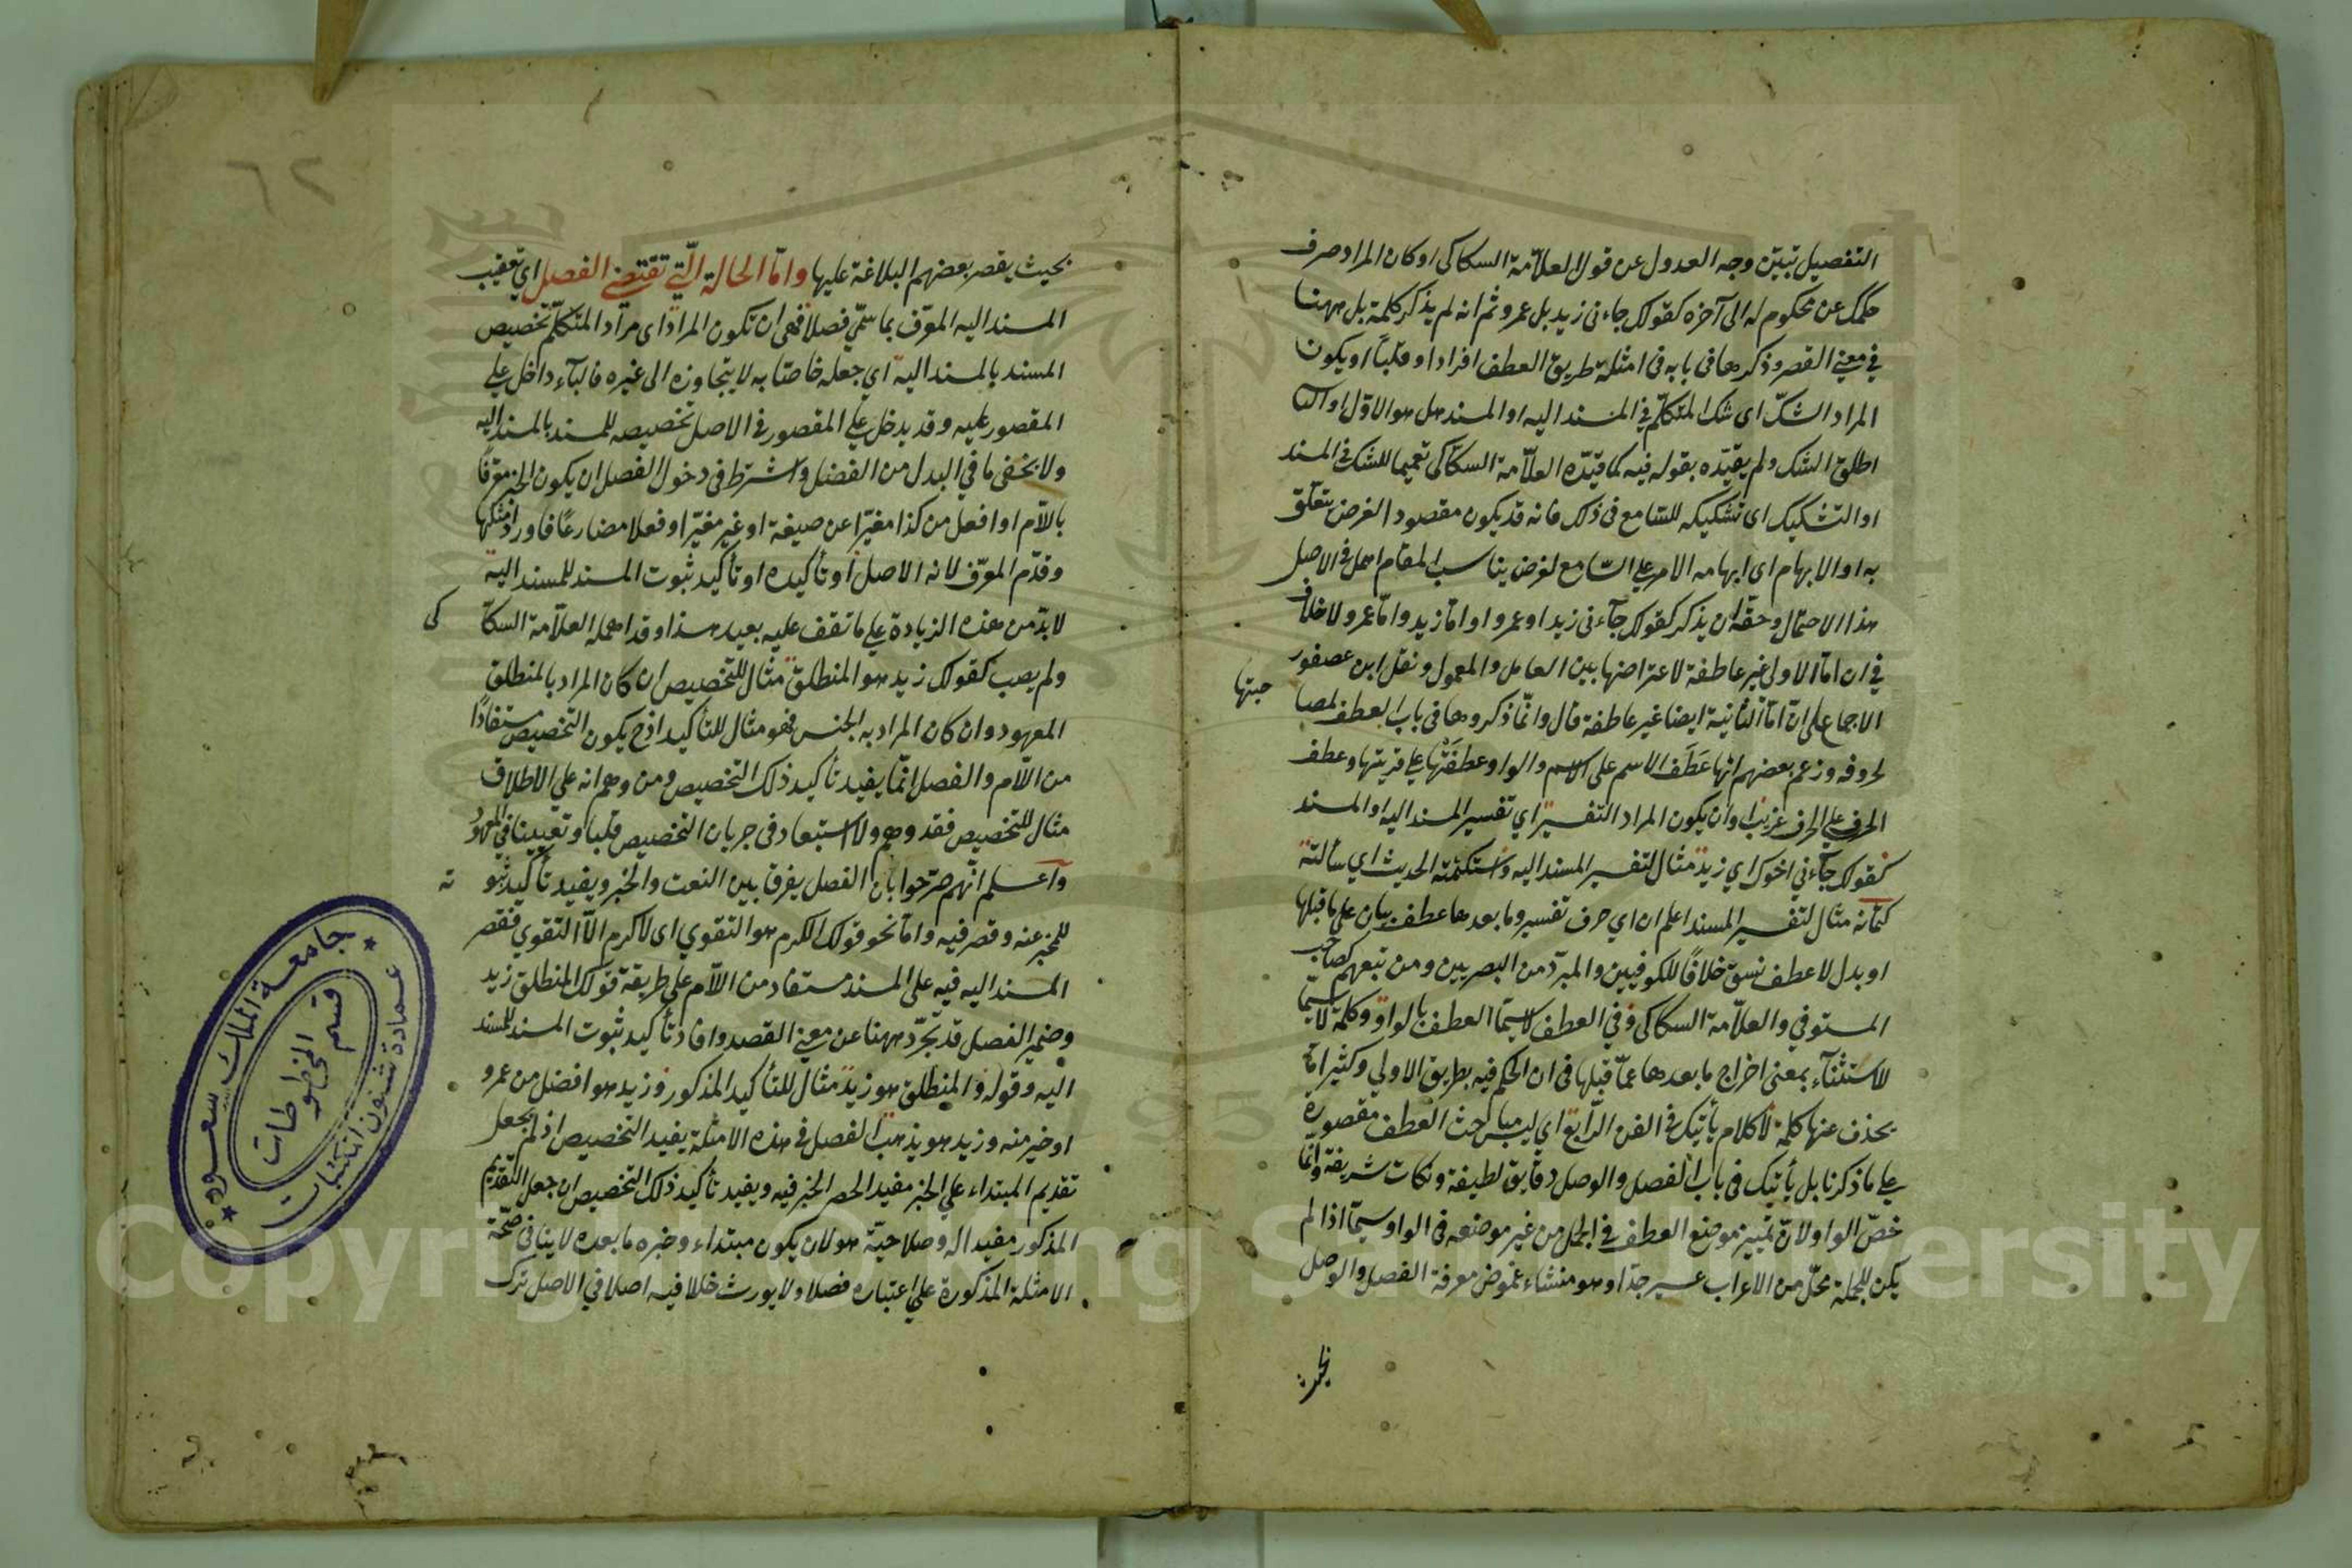 التفصيل تبيّن وجه العدول عن قول العلاّمة السكاكى او كان المراد صرف
حكمك عن محكوم له الى آخره كقولك جاءنى زيد بل عمرو ثم انه لم يذكر كلمة بل ههنا
في معنى القصر وذكرها فى بابه فى امثلة طريق العطف افرادا او قلبًا او يكون
المراد الشكّ اى شك المتكلّم في المسند اليه او المسند هل هو الاوّل او الثا
اطلق الشك ولم يقيّده بقوله فيه كما قيّده العلاّمة السكاكى تعميما للشك في المسند
او التشكيك اى تشكيكه للسّامع فى ذلك فانه قد يكون مقصود الغرض يتعلّق
به او الابهام اى ابهامه الامر على السّامع لغرض يناسب المقام اهمل في الاصل
هذا الاحتمال وحقّه ان يذكر كقولك جآءنى زيد او عمرو او امّا زيد وامّا عمرو لا خلاف
في ان امّا الاولى غير عاطفة لاعتراضها بين العامل والمعمول ونقل ابن عصفور
الاجماع على انّ امّا الثانية ايضا غير عاطفة قال وانّما ذكروها فى باب العطف لمصا
حبتها
لحروفه وزعم بعضهم انها عَطَفَ الاسم على الاسم والواو عطفَتْها على قرينتها وعطف
الحرف على الحرف غريب او ان يكون المراد التفسير اي تفسير المسند اليه او المسند
كقولك جآءنى اخوك اي زيد مثال لتفسير المسند اليه واستكتمته الحديث اي سألته
كتمانه مثال لتفسير المسند اعلم ان اي حرف تفسير وما بعدها عطف بيان على ما قبلها
او بدل لا عطف نسق خلافًا للكوفيين والمبرّد من البصريين ومن تبعهم كصاحب
المستوفي والعلاّمة السكاكى وفي العطف لا سيّما العطف بالواو وكلمة لا سيّما
للاستثنآء بمعنى اخراج ما بعدها عمّا قبلها فى ان الحكم فيه بطريق الاولي وكثيرا مّا
يحذف عنها كلمة لا كلام يأتيك في الفن الرّابع اي ليس مباحث العطف مقصورة
على ما ذكرنا بل يأتيك فى باب الفصل والوصل دقايق لطيفة ونكات شريفة وانّما
خصّ الواو لانّ تمييز موضع العطف في الجمل من غير موضعه فى الواو سيّما اذا لم
يكن للجملة محلّ من الاعراب عسير جدّا وهو منشاء غموض معرفة الفصل والوصل
بحيث
٦٢
بحيث يقصر بعضهم البلاغة عليها وامّا الحالة الّتي تقتضي الفصل اي تعقيب
المسند اليه المعرّف بما سمّي فصلا فهى ان تكون المراد اى مراد المتكلّم تخصيص
المسند بالمسند اليه اي جعله خاصّا به لا يتجاوزه الى غيره فالبآء داخل على
المقصور عليه وقد يدخل على المقصور في الاصل تخصيصه للمسند بالمسند اليه
ولا يخفى ما في البدل من الفضل واشترط فى دخول الفصل ان يكون الخبر معرّفًا
باللاّم او افعل من كذا مغيّرا عن صيغة او غير مغيّر او فعلا مضارعًا فاورد امثلتها
وقدّم المعرّف لانه الاصل او تأكيده او تأكيد ثبوت المسند للمسند اليه
لا بدّ من هذه الزيادة على ما تقف عليه بعيد هذا وقد اهمله العلاّمة السكاّ
كى
ولم يصب كقولك زيد هو المنطلق مثال للتخصيص ان كان المراد بالمنطلق
المعهود وان كان المراد به الجنس فهو مثال للتأكيد اذ ح يكون التخصيص مستفادًا
من اللاّم والفصل انّما يفيد تأكيد ذلك التخصيص ومن وهم انه على الاطلاق
مثال للتخصيص فقد وهم ولا استبعاد فى جريان التخصيص قلبا وتعيينا في المعهود
واعلم انّهم صرّحوا بان الفصل يفرق بين النعت والخبر ويفيد تأكيد ثبو
ته
للمخبر عنه وقصر فيه وامّا نحو قولك الكرم هو التقوي اى لا كرم الاّ التقوي فقصر
المسند اليه فيه على المسند مستفاد من اللاّم على طريقة قولك المنطلق زيد
وضمير الفصل قد تجرّد ههنا عن معنى القصد وافاد تأكيد ثبوت المسند للمسند
اليه وقوله والمنطلق هو زيد مثال للتأكيد المذكور وزيد هو افضل من عمرو
او خير منه وزيد هو يذهب الفصل في هذه الامثلة يفيد التخصيص اذ لم يجعل
تقديم المبتداء على الخبر مفيد الحصر الخبر فيه ويفيد تأكيد ذلك التخصيص ان جعل التقديم
المذكور مفيدا له وصلاحيّة هو لان يكون مبتداء وخبره ما بعده لا ينافى صحّة
الامثلة المذكورة على اعتباره فصلا ولا يورث خللا فيه اصلا في الاصل ترك
جامعة الملك سعود
قسم المخطوطات
عمادة شئون المكتبات
Copyright © King Saud University